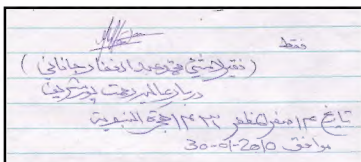 فقط
(فقیر لاشئ محمد عبد الغفار جانانی)
دربار عالیہ رحمت پور شریف
تاریخ ۱۴ صفر المظفر ۱۴۳۱ ہجرۃ النبویۃ
موافق 30-01-2010